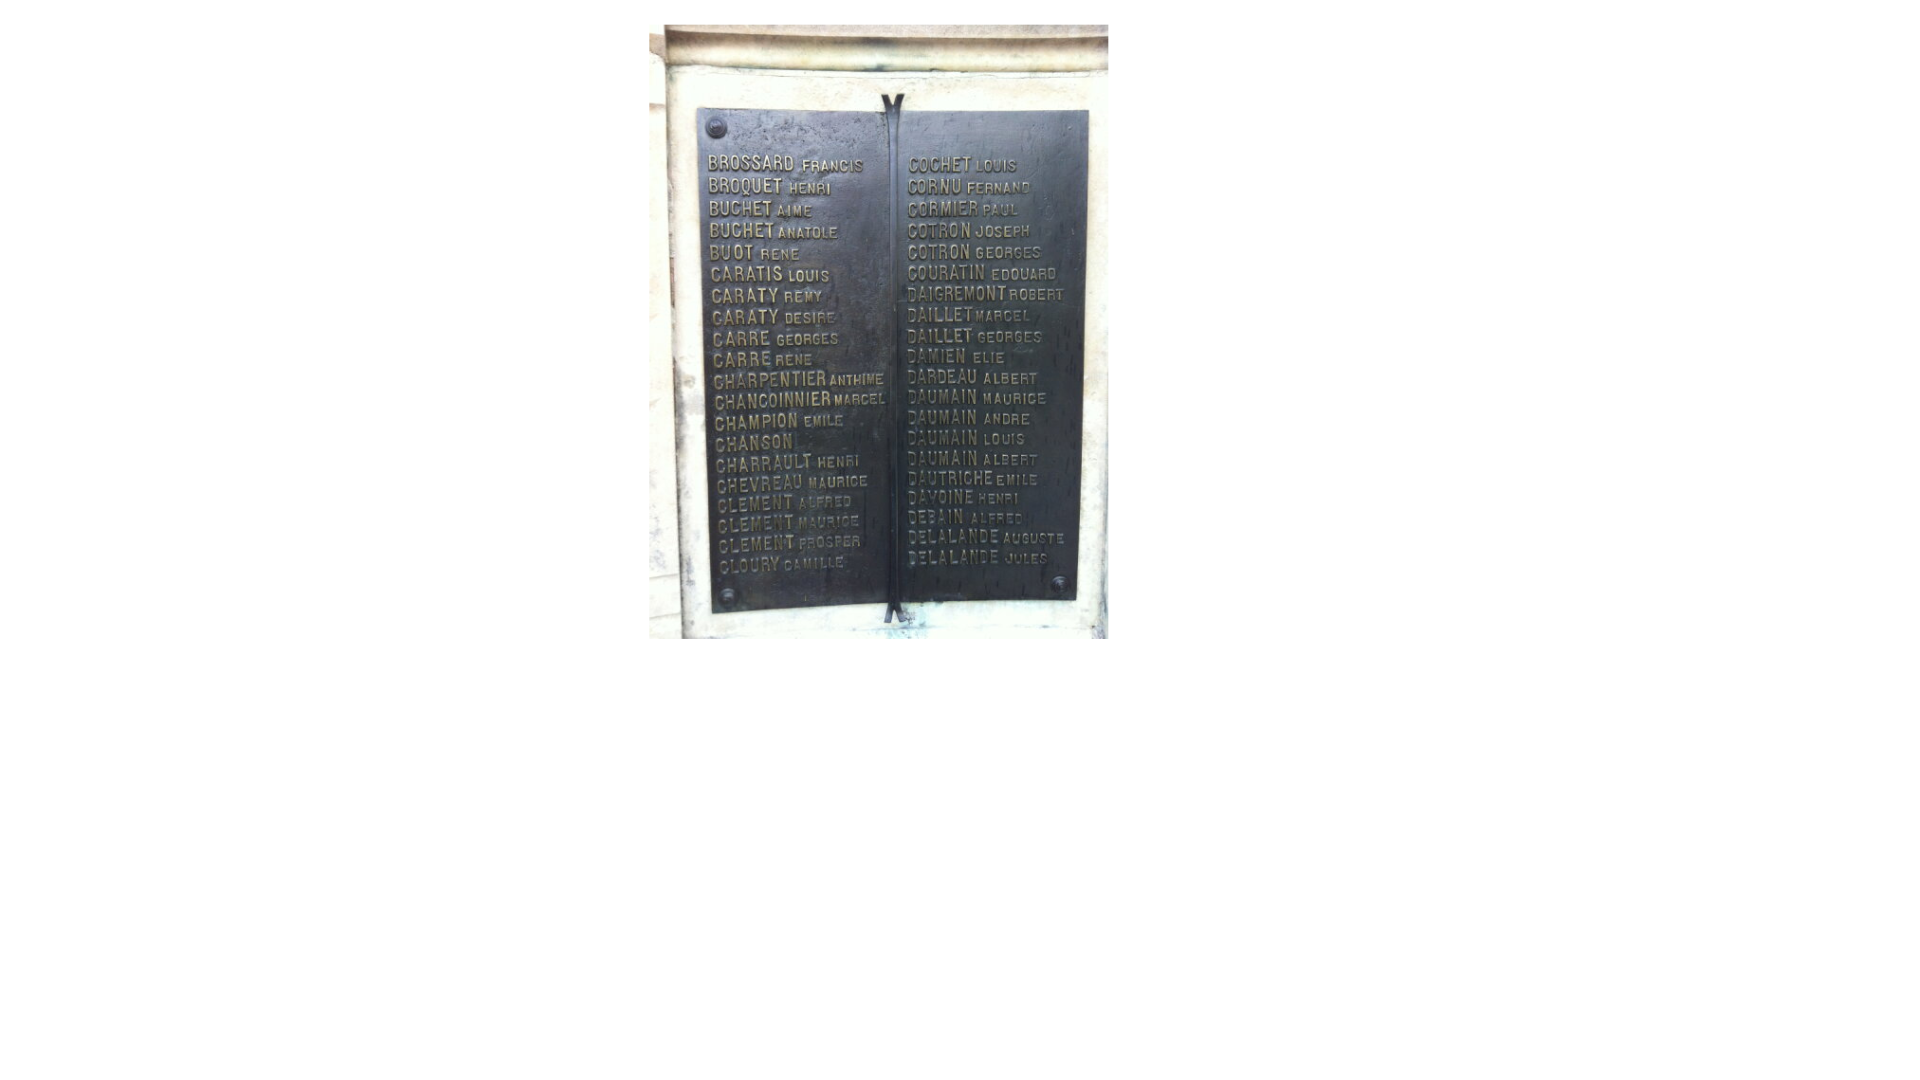 BROSSARD FRANCIS
BROQUET HENRI
BUCHET AIME
BUCHET ANATOLE
BUOT RENE
CARATIS LOUIS
CARATY REMY
CARATY DESIRE
CARRE GEORGES
CARRE RENE
CHARPENTIER ANTHIME
CHANCOINNIER MARCEL
CHAMPION EMILE
CHANSON
CHARRAULT HENRI
CHEVREAU MAURICE
CLEMENT ALFRED
CLEMENT MAURICE
CLEMENT PROSPER
CLOURY CAMILLE
COCHET LOUIS
CORNU FERNAND
CORMIER PAUL
COTRON JOSEPH
COTRON GEORGES
COURATIN EDOUARD
DAIGREMONT ROBERT
DAILLET MARCEL
DAILLET GEORGES
DAMIEN ELIE
DARDEAU ALBERT
DAUMAIN MAURICE
DAUMAIN ANDRE
DAUMAIN LOUIS
DAUMAIN ALBERT
DAUTRICHE EMILE
DAVOINE HENRI
DEBAIN ALFRED
DELALANDE AUGUSTE
DELALANDE JULES